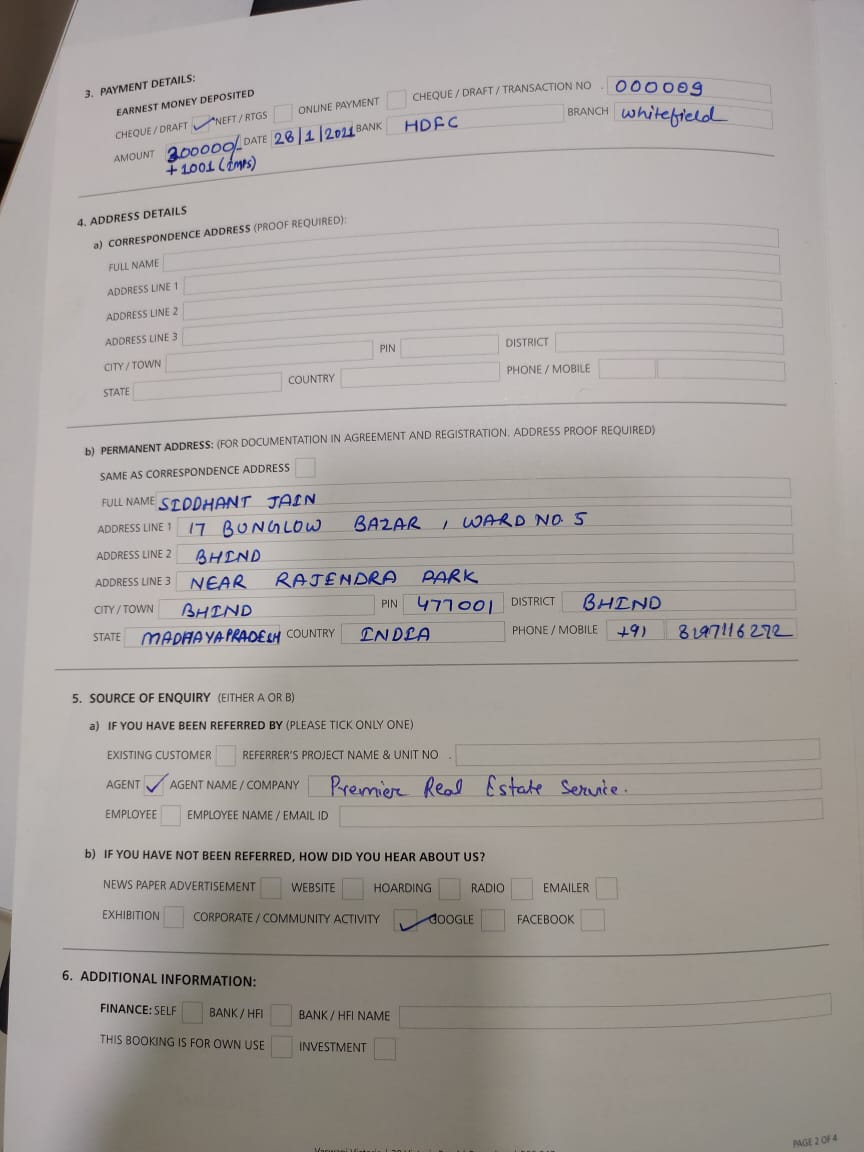 3. PAYMENT DETAILS:
EARNEST MONEY DEPOSITED
CHEQUE / DRAFT ✓ NEFT / RTGS ONLINE PAYMENT CHEQUE / DRAFT / TRANSACTION NO. 000009
AMOUNT 200000/- DATE 28/1/2021 BANK HDFC BRANCH Whitefield
+ 1001 (imps)
4. ADDRESS DETAILS
a) CORRESPONDENCE ADDRESS (PROOF REQUIRED):
FULL NAME
ADDRESS LINE 1
ADDRESS LINE 2
ADDRESS LINE 3
CITY / TOWN PIN DISTRICT
STATE COUNTRY PHONE / MOBILE
b) PERMANENT ADDRESS: (FOR DOCUMENTATION IN AGREEMENT AND REGISTRATION. ADDRESS PROOF REQUIRED)
SAME AS CORRESPONDENCE ADDRESS
FULL NAME SIDDHANT JAIN
ADDRESS LINE 1 17 BUNGLOW BAZAR , WARD NO. 5
ADDRESS LINE 2 BHIND
ADDRESS LINE 3 NEAR RAJENDRA PARK
CITY / TOWN BHIND PIN 477001 DISTRICT BHIND
STATE MADHAYAPRADESH COUNTRY INDIA PHONE / MOBILE +91 8197116272
5. SOURCE OF ENQUIRY (EITHER A OR B)
a) IF YOU HAVE BEEN REFERRED BY (PLEASE TICK ONLY ONE)
EXISTING CUSTOMER REFERRER'S PROJECT NAME & UNIT NO.
AGENT ✓ AGENT NAME / COMPANY Premier Real Estate Service.
EMPLOYEE EMPLOYEE NAME / EMAIL ID
b) IF YOU HAVE NOT BEEN REFERRED, HOW DID YOU HEAR ABOUT US?
NEWS PAPER ADVERTISEMENT WEBSITE HOARDING RADIO EMAILER
EXHIBITION CORPORATE / COMMUNITY ACTIVITY ✓ GOOGLE FACEBOOK
6. ADDITIONAL INFORMATION:
FINANCE: SELF BANK / HFI BANK / HFI NAME
THIS BOOKING IS FOR OWN USE INVESTMENT
PAGE 2 OF 4